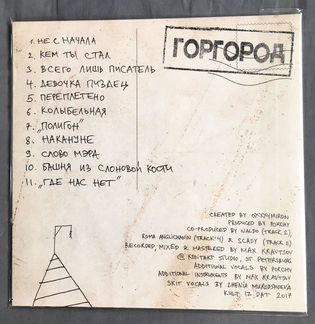 ГОРГОРОД
1. НЕ С НАЧАЛА
2. КЕМ ТЫ СТАЛ
3. ВСЕГО ЛИШЬ ПИСАТЕЛЬ
4. ДЕВОЧКА ПИЗДЕЦ
5. ПЕРЕПЛЕТЕНО
6. КОЛЫБЕЛЬНАЯ
7. „ПОЛИГОН"
8. НАКАНУНЕ
9. СЛОВО МЭРА
10. БАШНЯ ИЗ СЛОНОВОЙ КОСТИ
11. „ГДЕ НАС НЕТ"
CREATED BY OXXXYMIRON
PRODUCED BY PORCHY
CO-PRODUCED BY (TRACK 2),
ROMA ANGLICHANIN (TRACK 4) & SCADY (TRACK 11)
RECORDED, MIXED & MASTERED BY MAX KRAVTSOV
@ KONTAKT STUDIO, ST. PETERSBURG
ADDITIONAL VOCALS BY PORCHY
ADDITIONAL INSTRUMENTS BY MAX KRAVTSOV
SKIT VOCALS BY
2017